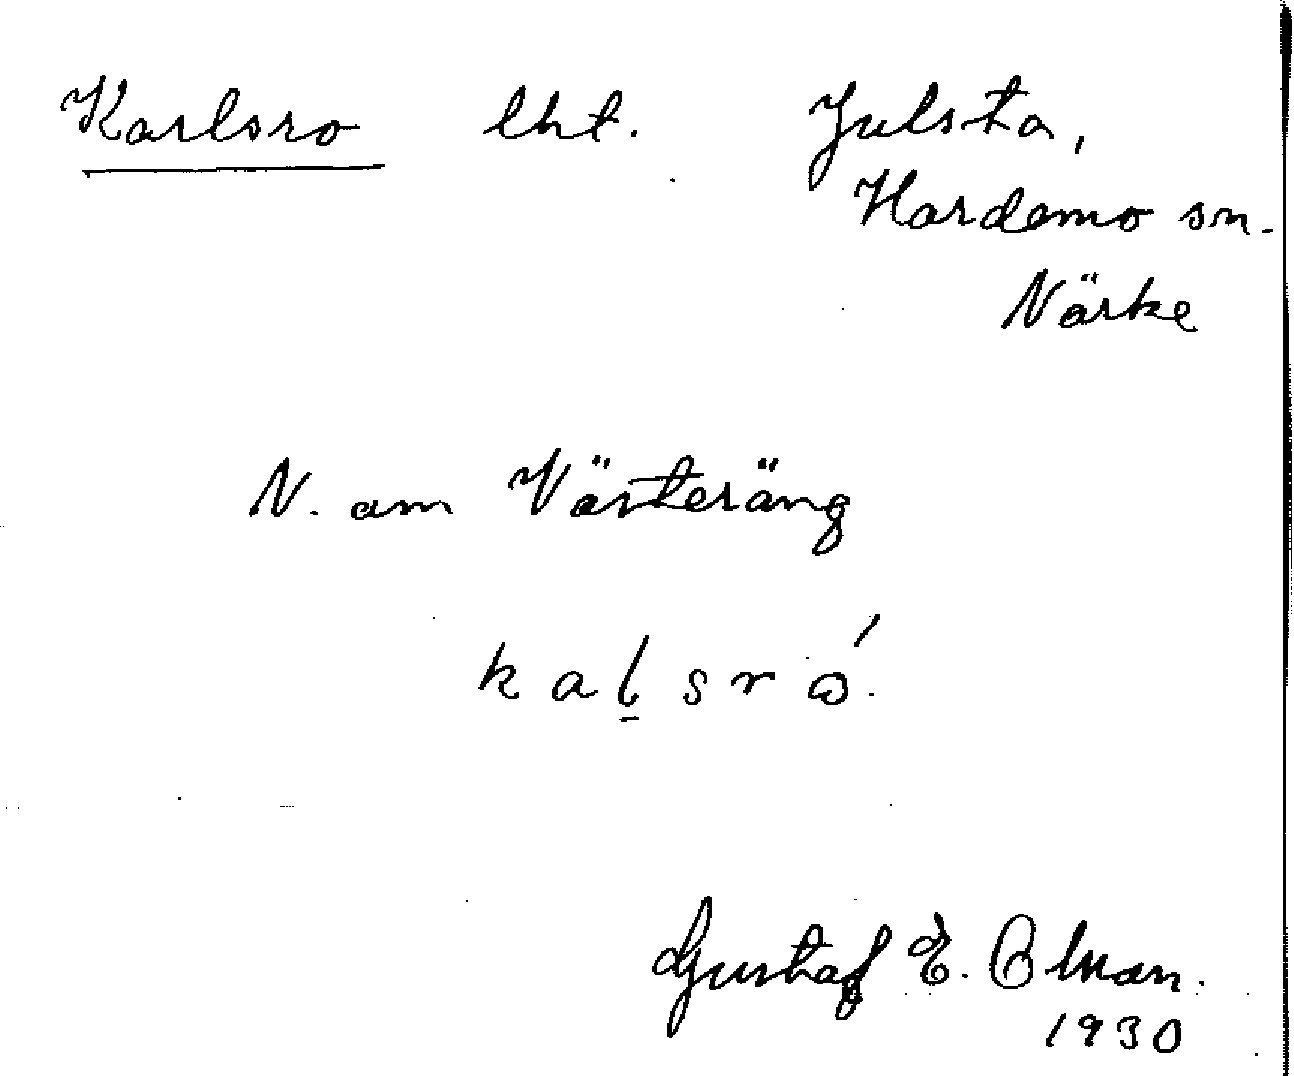 Karlsro lht. Julsta,
Hardemo sn.
Närke
N. om Västeräng
kaḻsró.
Gustaf E. Olsson.
1930